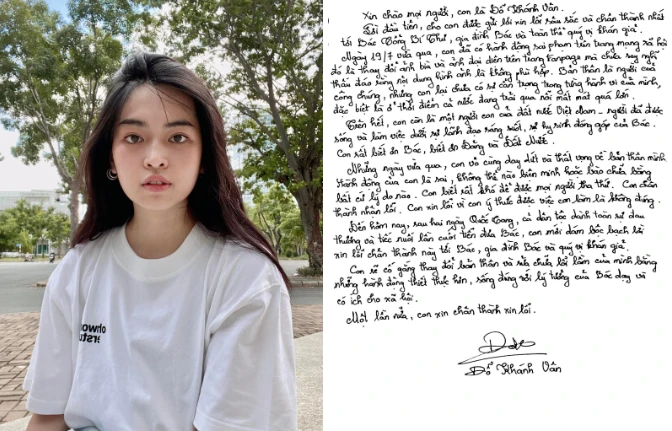 ohwo
erstu
Xin chào mọi người, con là Đỗ Khánh Vân.
Lời đầu tiên, cho con được gửi lời xin lỗi sâu sắc và chân thành nhất
tới Bác Tổng Bí Thư, gia đình Bác và toàn thể quý vị khán giả.
Ngày 19/7 vừa qua, con đã có hành động sai phạm trên trang mạng xã hội
đó là thay đổi ảnh bìa và ảnh đại diện trên trang Fanpage mà chưa suy nghĩ
thấu đáo rằng nội dung hình ảnh là không phù hợp. Bản thân là người của
công chúng, nhưng con lại chưa có sự cẩn trọng trong từng hành vi của mình,
đặc biệt là ở thời điểm cả nước đang trải qua nỗi mất mát quá lớn.
Trên hết, con còn là một người con của đất nước Việt Nam - người đã được
sống và làm việc dưới sự lãnh đạo sáng suốt, sự hy sinh đóng góp của Bác.
Con rất biết ơn Bác, biết ơn Đảng và Đất Nước.
Những ngày vừa qua, con vô cùng day dứt và thất vọng về bản thân mình
Hành động của con là sai, không thể nào biện minh hoặc bào chữa bằng
bất cứ lý do nào. Con biết rất khó để được mọi người tha thứ. Con chân
thành nhận lỗi. Con xin lỗi vì con ý thức được việc con làm là không đúng.
Đến hôm nay, sau hai ngày Quốc Tang, cả dân tộc dành toàn sự đau
thương và tiếc nuối lần cuối tiễn đưa Bác, con mới dám bộc bạch lời
xin lỗi chân thành này tới Bác, gia đình Bác và quý vị khán giả.
Con sẽ cố gắng thay đổi bản thân và sửa chữa lỗi lầm của mình bằng
những hành động thiết thực hơn, sống đúng với lý tưởng của Bác dạy và
có ích cho xã hội.
Một lần nữa, con xin chân thành xin lỗi.
Đỗ Khánh Vân